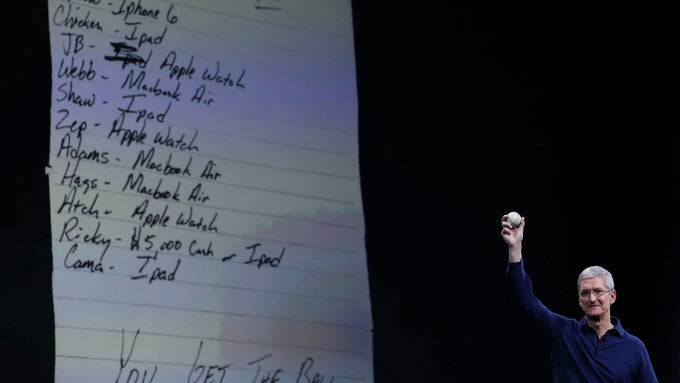 Iphone 6
Chicken - Ipad
JB - Apple Watch
Webb - Macbook Air
Shaw - Ipad
Zep - Apple Watch
Adams - Macbook Air
Hags - Macbook Air
Atch - Apple Watch
Ricky - $5,000 Cash or Ipad
Cama - Ipad
You GET THE Ball